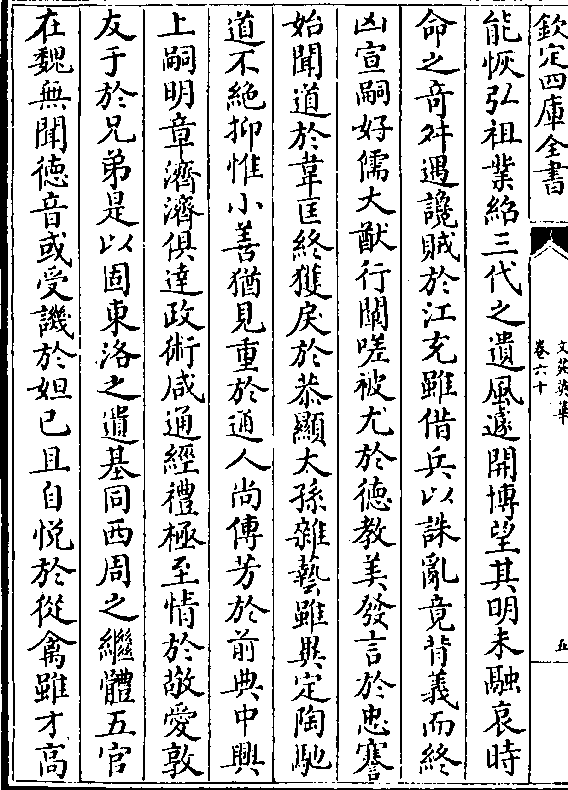 欽定四庫全書
文苑英華
卷六十
五
能恢弘祖業紹三代之遺風遽開博望其明未融哀時
命之奇舛遇讒賊於江充雖借兵以誅亂竟背義而終
凶宣嗣好儒大猷行闡嗟被尤於德教美發言於忠謇
始聞道於韋匡終獲戾於恭顯太孫雜藝雖異定陶馳
道不絶抑惟小善猶見重於通人尚傳芳於前典中興
上嗣明章濟濟俱達政術咸通經禮極至情於敬愛敦
友于於兄弟是以固東洛之遺基同西周之繼體五官
在魏無聞德音或受譏於妲己且自悦於從禽雖才高